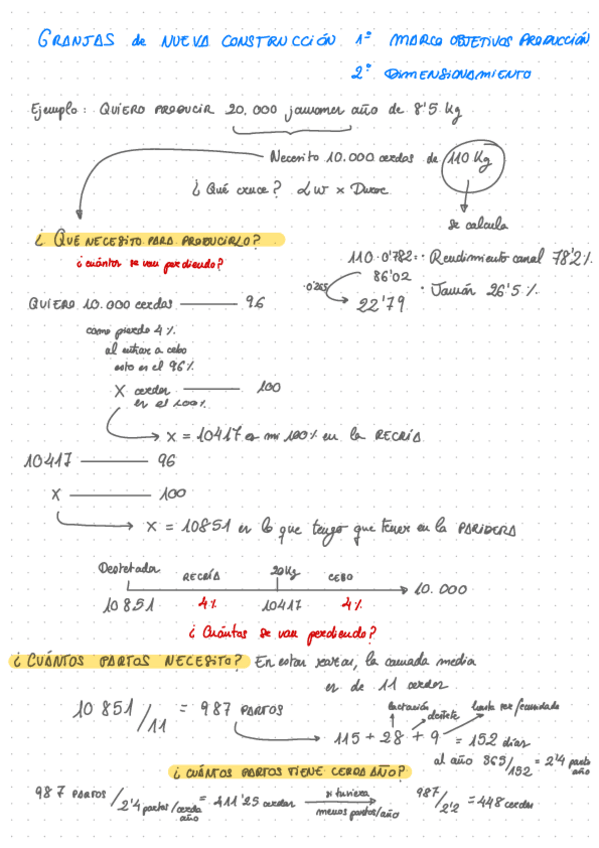 GRANJAS de NUEVA CONSTRUCCIÓN 1º MARCO OBJETIVOS PRODUCCIÓN
2º DIMENSIONAMIENTO
Ejemplo: QUIERO PRODUCIR 20.000 jamones año de 8'5 Kg
Necesito 10.000 cerdas de 110 Kg
¿Qué cruce? LW x Duroc
se calcula
¿QUÉ NECESITO PARA PRODUCIRLO?
¿cuántos se van perdiendo?
110 · 0'782 · Rendimiento canal 78'2%
86'02
·0'265
· Jamón 26'5%
22'79
QUIERO 10.000 cerdas 96
como pierdo 4%
al entrar a cebo
esto es el 96%
X cerdos 100
es el 100%
X = 10417 es mi 100% en la RECRÍA
10417 96
X 100
X = 10851 es lo que tengo que tener en la PARIDERA
Destetados RECRÍA 20Kg CEBO
10.000
10851 4% 10417 4%
¿Cuántas se van perdiendo?
¿CUÁNTOS PARTOS NECESITO? En estas razas, la camada media
es de 11 cerdos
10851/11 = 987 PARTOS
lactación destete hasta ser fecundada
115 + 28 + 9 = 152 días
al año 365/152 = 2'4 partos año
¿CUÁNTOS PARTOS TIENE CERDA AÑO?
987 PARTOS / 2'4 partos/cerda año = 411'25 cerdas si tuviera menos partos/año 987/2'2 = 448 cerdas